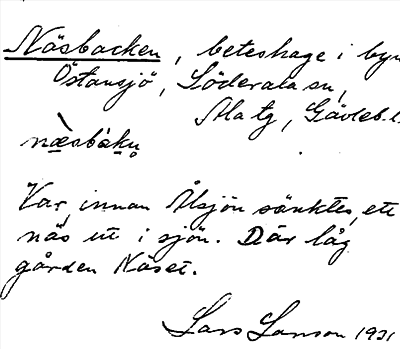 Näsbacken, beteshage i byn
Östansjö, Söderala sn,
Ala tg, Gävleb. l.
næsbàkụ
Var, innan Ålsjön sänktes, ett
näs ut i sjön. Där låg
gården Näset.
Lars Larsson 1921